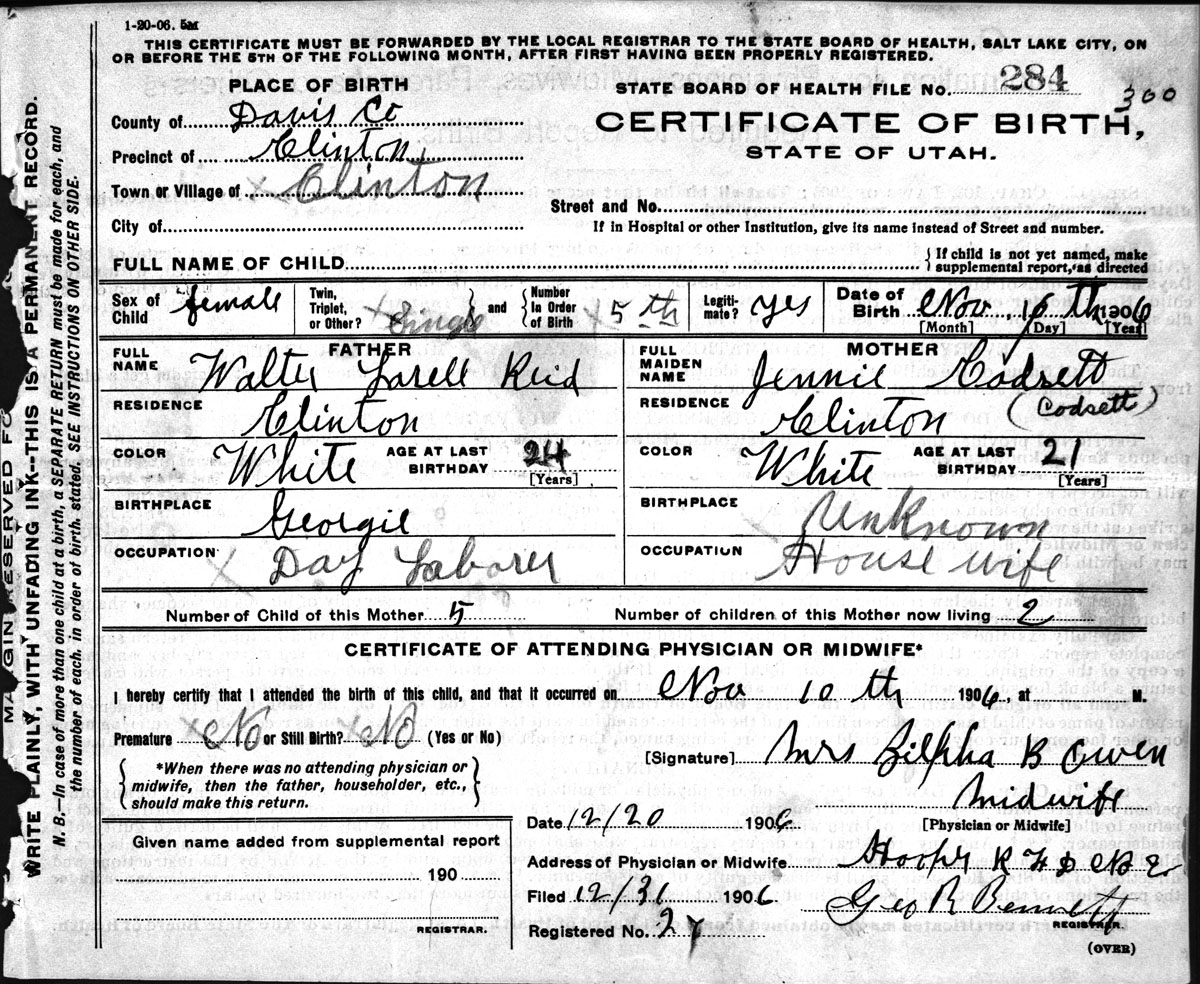 1-20-06. 5M
THIS CERTIFICATE MUST BE FORWARDED BY THE LOCAL REGISTRAR TO THE STATE BOARD OF HEALTH, SALT LAKE CITY, ON
OR BEFORE THE 5TH OF THE FOLLOWING MONTH, AFTER FIRST HAVING BEEN PROPERLY REGISTERED.
STATE BOARD OF HEALTH FILE No. 284
300
PLACE OF BIRTH
County of Davis Co
Precinct of Clinton,
Town or Village of Clinton
City of
CERTIFICATE OF BIRTH,
STATE OF UTAH.
Street and No.
If in Hospital or other Institution, give its name instead of Street and number.
FULL NAME OF CHILD
If child is not yet named, make
supplemental report, as directed
Sex of Child female
Twin, Triplet, or Other? Single and Number In Order of Birth 5th
Legiti-mate? yes
Date of Birth Nov 1906
[Month] [Day] [Year]
FATHER
FULL NAME Walter Reid
RESIDENCE Clinton
COLOR White AGE AT LAST BIRTHDAY 24
[Years]
BIRTHPLACE Georgie
OCCUPATION Day Laborer
MOTHER
FULL MAIDEN NAME Jennie Codsett
(Codsett)
RESIDENCE Clinton
COLOR White AGE AT LAST BIRTHDAY 21
[Years]
BIRTHPLACE Unknown
OCCUPATION House wife
Number of Child of this Mother 5 Number of children of this Mother now living 2
CERTIFICATE OF ATTENDING PHYSICIAN OR MIDWIFE*
I hereby certify that I attended the birth of this child, and that it occurred on Nov 10 th 1906, at M.
Premature No or Still Birth? No (Yes or No)
*When there was no attending physician or
midwife, then the father, householder, etc.,
should make this return.
[Signature] Mrs Zilpha B Owen
Midwife
[Physician or Midwife]
Given name added from supplemental report
190
REGISTRAR.
Date 12/20 1906
Address of Physician or Midwife Hooper R F D No 2
Filed 12/31 1906 Geo R Bennett
REGISTRAR.
Registered No. 27
(OVER)
MARGIN RESERVED FO
WRITE PLAINLY, WITH UNFADING INK--THIS IS A PERMANENT RECORD.
N. B.--In case of more than one child at a birth, a SEPARATE RETURN must be made for each, and
the number of each, in order of birth, stated. SEE INSTRUCTIONS ON OTHER SIDE.